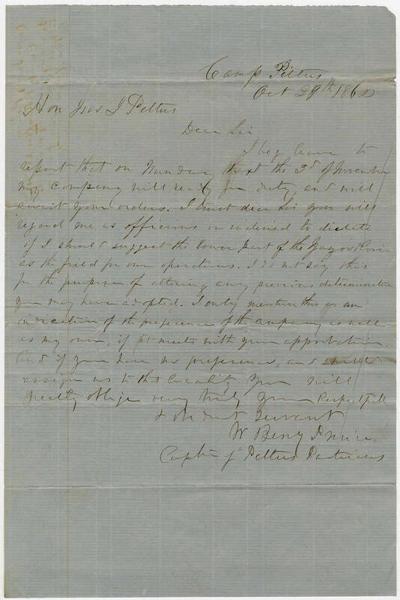 Camp Pettus
Oct 29th 1862
Hon Jno J Pettus
Dear Sir
I beg leave to
report that on Munday next the 3d of November
my company will be ready for duty and will
await your orders. I trust dear Sir you will
regard me as officious or inclined to dictate
if I should suggest the lower part of the Yazoo River
as the field for our operations. I do not say this
for the purpose of altering any previous determination
you may have adopted. I only mention this as an
indication of the preference of the company as well
as my own, if it meets with your approbation
and if you have no preference, and
assign us to this locality you will
greatly oblige very truly your Respectful
& obedient Servant
W Benj
Captn of Pettus Partisans